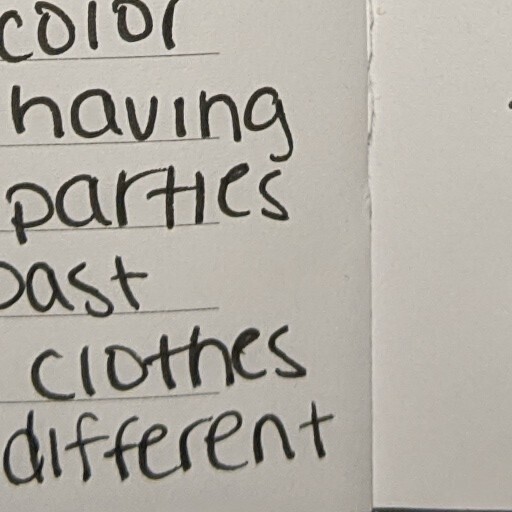 color
having
parties
past
clothes
different